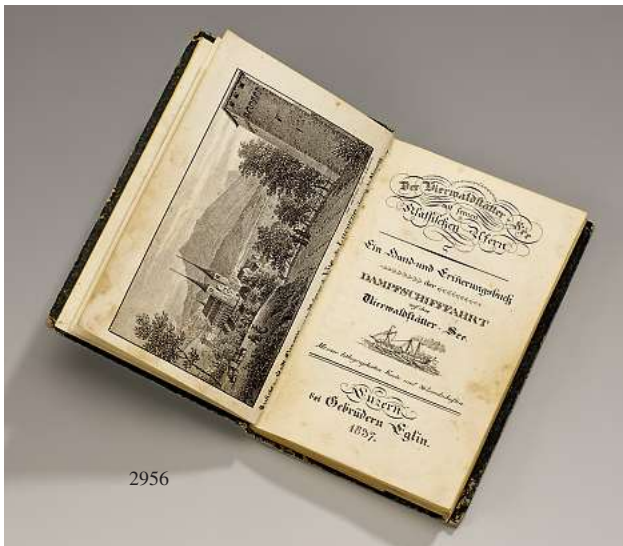 Der Vierwaldstätter-See
mit seinen
Klassischen Ufern
Ein Hand-und Erinerungsbuch
der
DAMPFSCHIFFFAHRT
auf dem
Vierwaldstätter-See.
lithographirten Karte und
Luzern
bei Gebrüdern Eglin.
1837.
2956